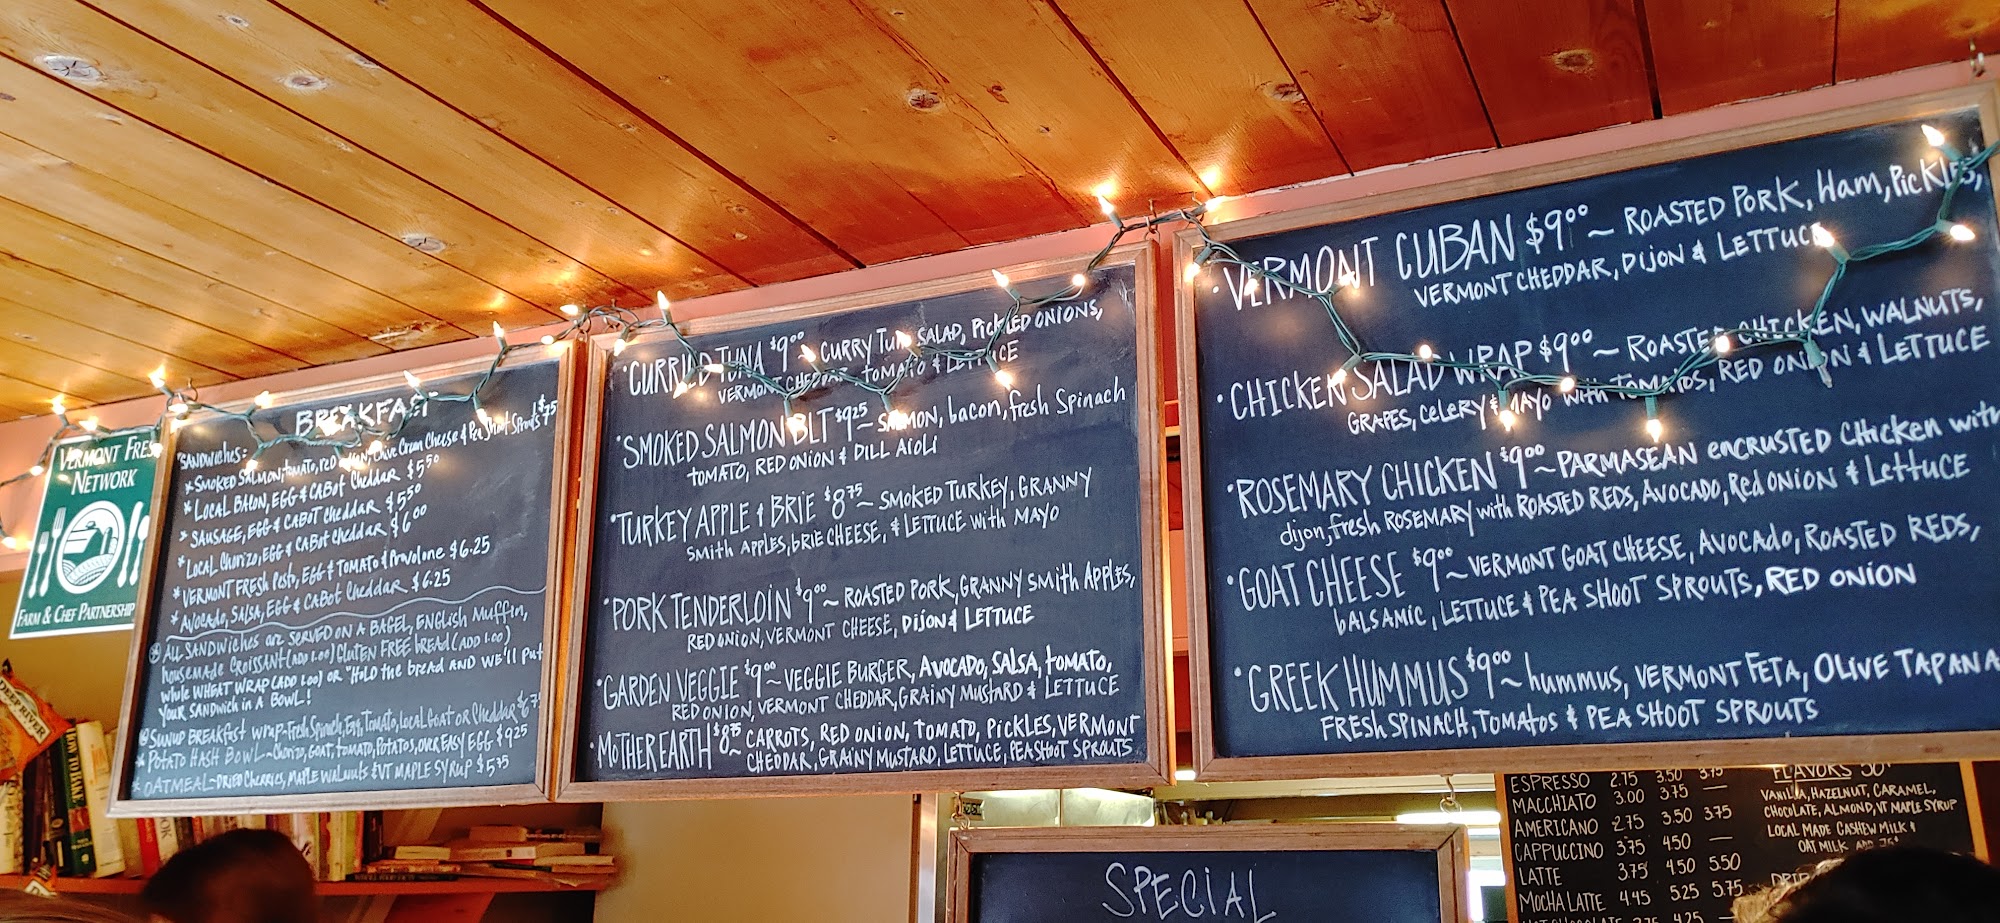 VERMONT FRES
NETWORK
FARM & CHEF PARTNERSHIP
BREAKFAST
SANDWICHES:
* SMOKED SALMON, tomato, red onion, Chive Cream Cheese & Pea Shoot Sprouts $7
* LOCAL BACON, EGG & CABOT CHEDDAR $5.50
* SAUSAGE, EGG & CABOT CHEDDAR $5.50
* LOCAL CHORIZO, EGG & CABOT CHEDDAR $6.00
* VERMONT FRESH Pesto, EGG & TOMATO & Provolone $6.25
* AVOCADO, SALSA, EGG & CABOT CHEDDAR $6.25
* ALL SANDWICHES are SERVED ON A BAGEL, ENGLISH MUFFIN,
housemade CROISSANT (ADD 1.00) GLUTEN FREE bread (ADD
whole WHEAT WRAP (ADD 1.00) or "HOLD the bread AND WE'LL put
YOUR SANDWICH in A BOWL!
SUNUP BREAKFAST WRAP-Fresh Spinach, Egg, Tomato, Local Goat OR Cheddar $6.75
* POTATO HASH BOWL-Chorizo, GOAT, tomato, Potatos, OVER EASY EGG $9.25
* OATMEAL-DRIED Cherries, Maple Walnuts & VT MAPLE SYRUP $5.75
• CURRIED TUNA $9.00 ~ CURRY TUNA SALAD, PICKLED ONIONS,
VERMONT CHEDDAR, TOMATO & LETTUCE
• SMOKED SALMON BLT $9.25 ~ SALMON, bacon, fresh Spinach
TOMATO, RED ONION & DILL AIOLI
• TURKEY APPLE & BRIE $8.75 ~ SMOKED TURKEY, GRANNY
Smith APPLES, brie CHEESE, & LETTUCE with MAYO
• PORK TENDERLOIN $9.00 ~ ROASTED PORK, GRANNY SMITH APPLES,
RED ONION, VERMONT CHEESE, DIJON & LETTUCE
• GARDEN VEGGIE $9.00 ~ VEGGIE BURGER, AVOCADO, SALSA, tomato,
RED ONION, VERMONT CHEDDAR, GRAINY MUSTARD & LETTUCE
• MOTHER EARTH $8.75 ~ CARROTS, RED ONION, TOMATO, PICKLES, VERMONT
CHEDDAR, GRAINY MUSTARD, LETTUCE, PEA SHOOT SPROUTS
• VERMONT CUBAN $9.00 ~ ROASTED PORK, Ham, Pickles,
VERMONT CHEDDAR, DIJON & LETTUCE
• CHICKEN SALAD WRAP $9.00 ~ ROASTED CHICKEN, WALNUTS,
GRAPES, celery & MAYO with TOMATOS, RED ONION & LETTUCE
• ROSEMARY CHICKEN $9.00 ~ PARMASEAN encrusted CHICKEN with
dijon, fresh ROSEMARY with ROASTED REDS, AVOCADO, Red ONION & LETTUCE
• GOAT CHEESE $9.00 ~ VERMONT GOAT CHEESE, AVOCADO, ROASTED REDS,
bALSAMIC, LETTUCE & PEA SHOOT SPROUTS, RED ONION
• GREEK HUMMUS $9.00 ~ hummus, VERMONT FETA, OLIVE TAPANA
FRESH SPINACH, TOMATOS & PEA SHOOT SPROUTS
DEEP RIVER
SPECIAL
ESPRESSO 2.75 3.50 3.75
MACCHIATO 3.00 3.75 —
AMERICANO 2.75 3.50 3.75
CAPPUCCINO 3.75 4.50 —
LATTE 3.75 4.50 5.50
MOCHA LATTE 4.45 5.25 5.75
FLAVORS 50¢
VANILLA, HAZELNUT, CARAMEL,
CHOCOLATE, ALMOND, VT MAPLE SYRUP
LOCAL MADE CASHEW MILK &
OAT MILK ADD 75¢